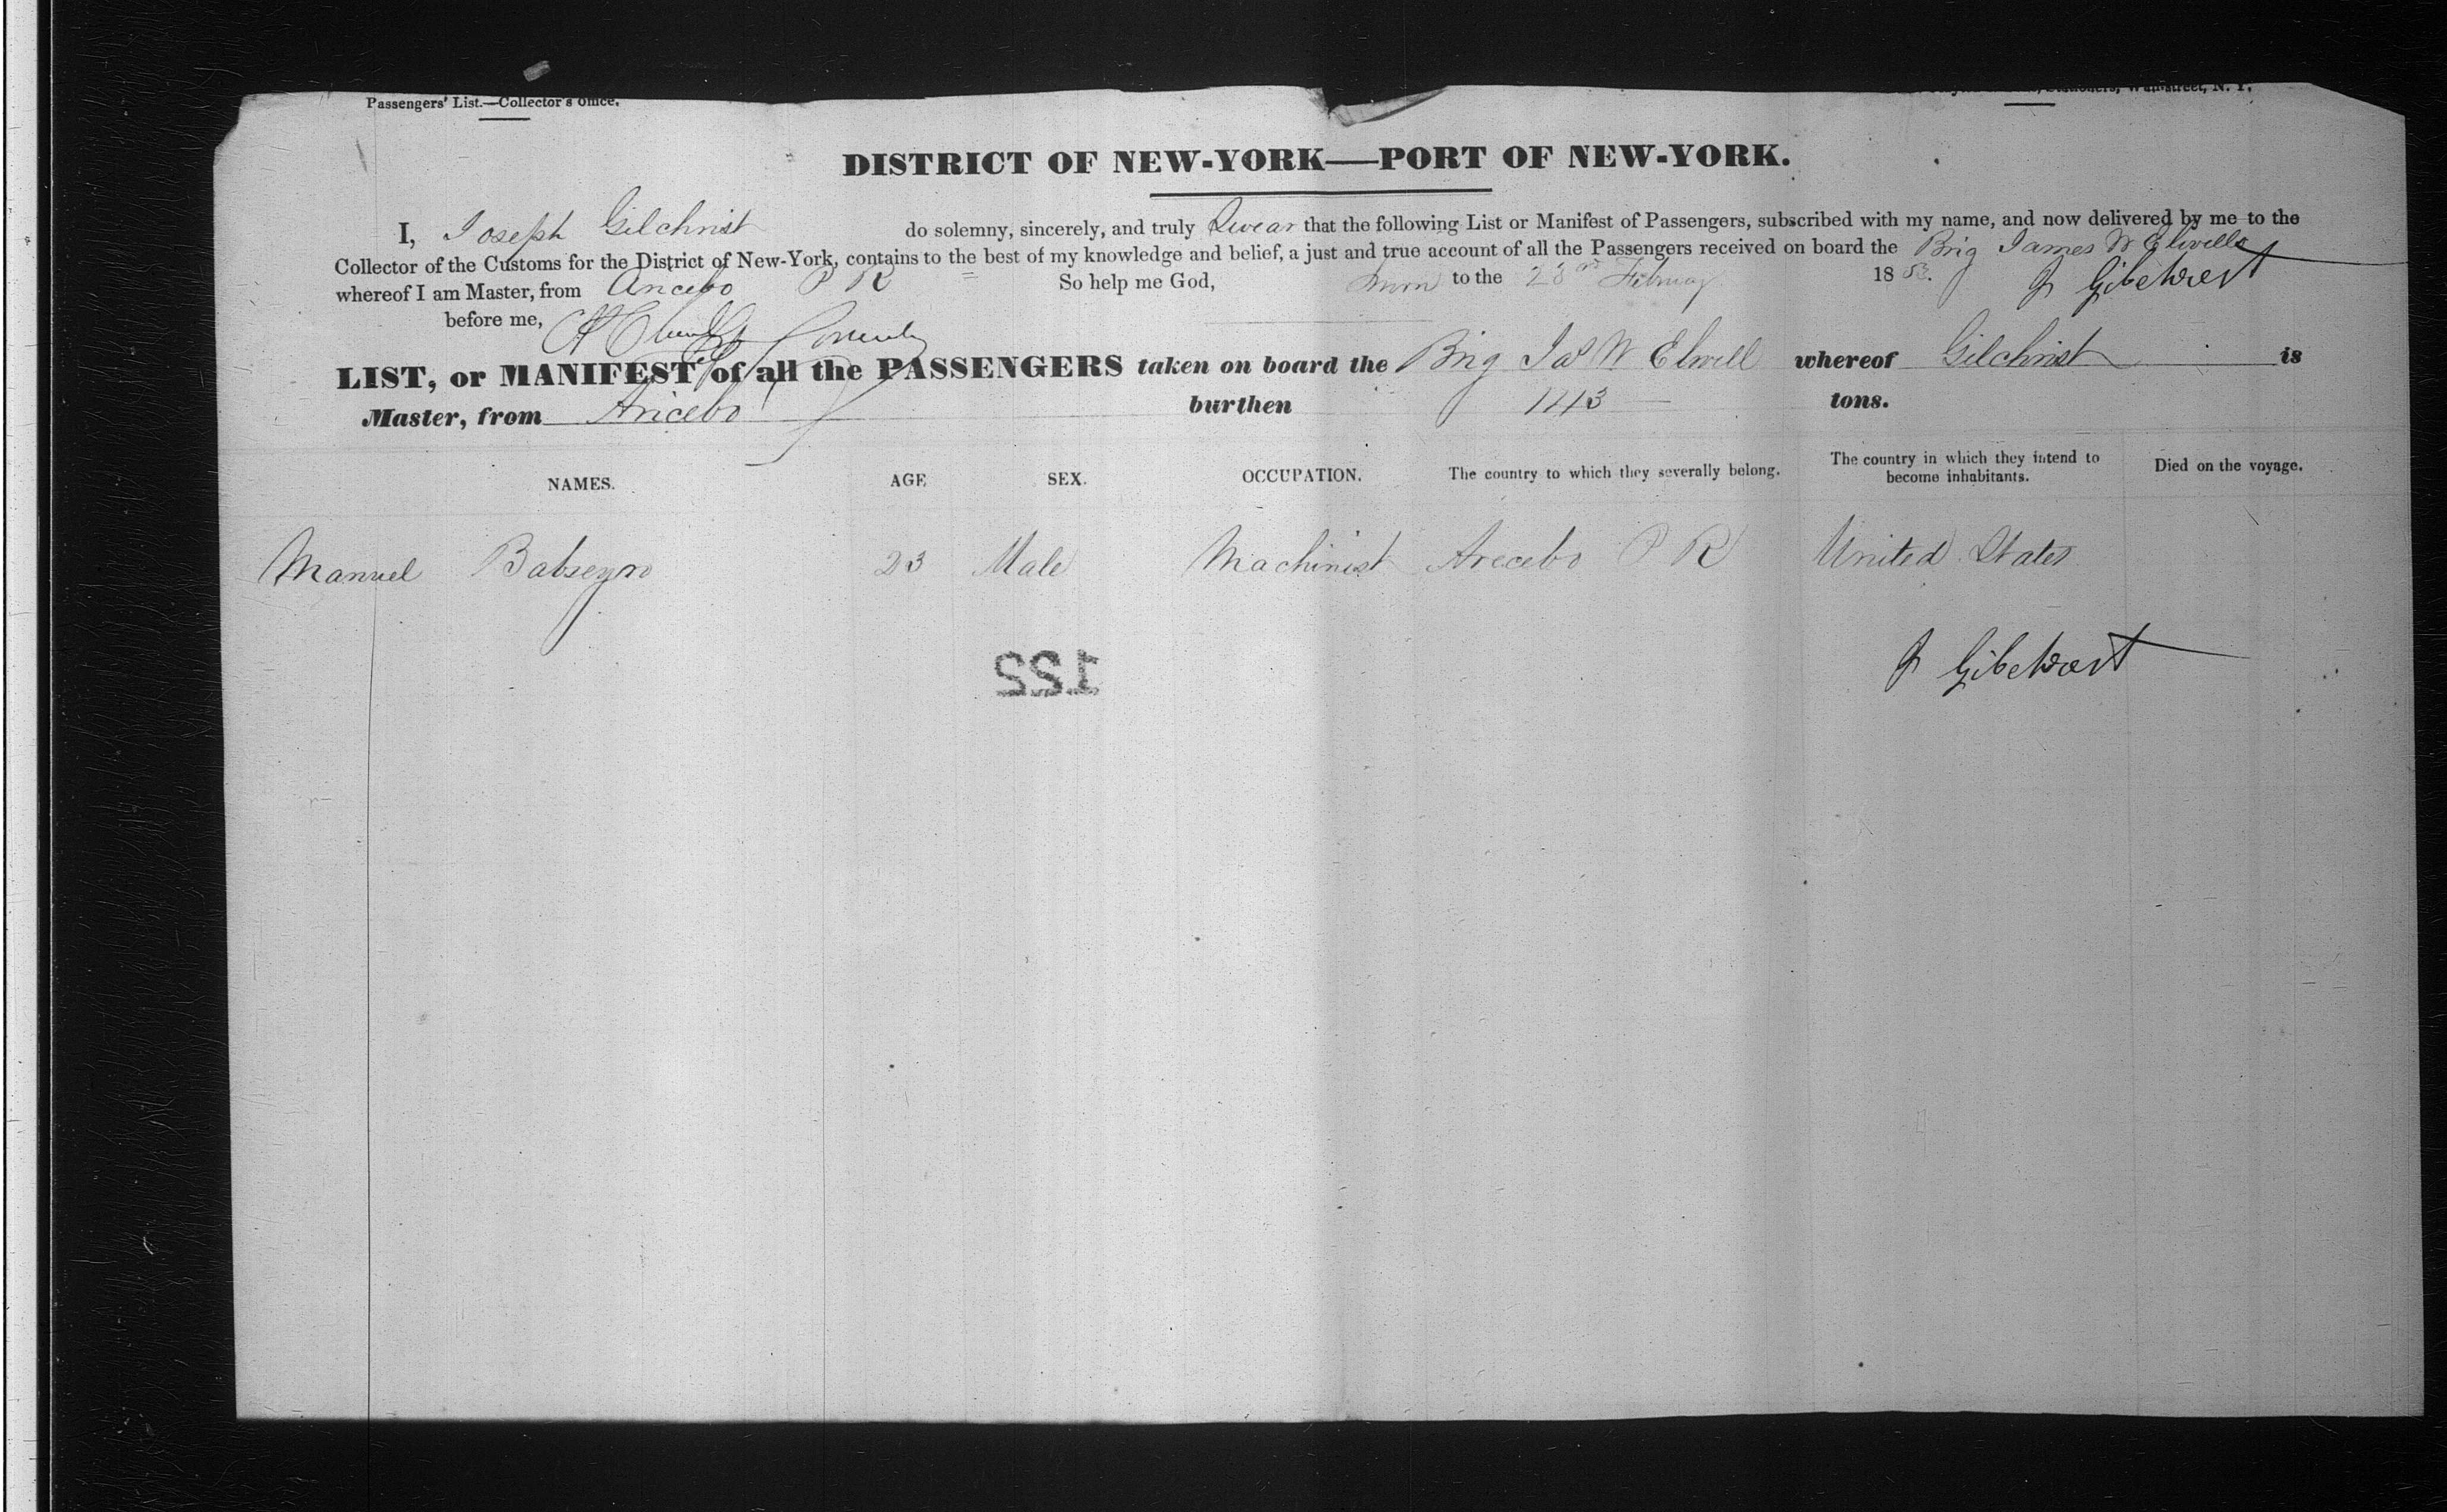 Passengers' List.—Collector's Office.
Stationers, Wall-street, N. Y.
DISTRICT OF NEW-YORK—PORT OF NEW-YORK.
I, Joseph Gilchrist do solemny, sincerely, and truly Swear that the following List or Manifest of Passengers, subscribed with my name, and now delivered by me to the
Collector of the Customs for the District of New-York, contains to the best of my knowledge and belief, a just and true account of all the Passengers received on board the Brig James W Elwell
whereof I am Master, from Aricebo P R So help me God, to the 23 February 18 J Gilchrest
before me,
LIST, or MANIFEST of all the PASSENGERS taken on board the Brig Jas W Elwell whereof Gilchrist is
Master, from Aricebo burthen tons.
NAMES. AGE SEX. OCCUPATION. The country to which they severally belong. The country in which they intend to become inhabitants. Died on the voyage.
Manuel 23 Male Machinist Arecebo P R United States
J Gilchrest
122